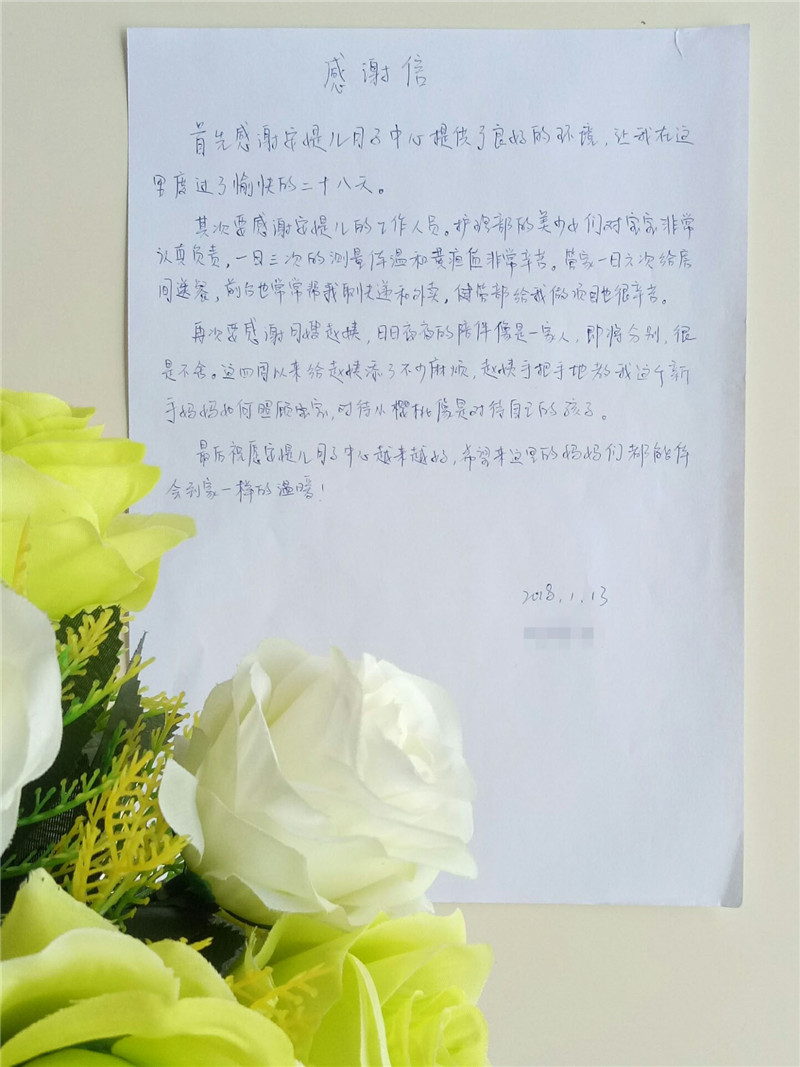 感谢信
首先感谢安媞儿月子中心提供了良好的环境，让我在这
里度过了愉快的二十八天。
其次要感谢安媞儿的工作人员。护理部的美少女们对宝宝非常
认真负责，一日三次的测量体温和黄疸值非常辛苦。管家一日六次给房
间送餐，前台也常常帮我取快递和外卖，健管部给我做项目也很辛苦。
再次要感谢月嫂赵姨，日日夜夜的陪伴像是一家人，即将分别，很
是不舍。这四周以来给赵姨添了不少麻烦，赵姨手把手地教我这个新
手妈妈如何照顾宝宝，对待小樱桃像是对待自己的孩子。
最后祝愿安媞儿月子中心越来越好，希望来这里的妈妈们都能体
会到家一样的温暖！
2018.1.13